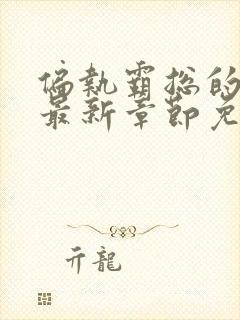 偏執霸総的
最新章節免
亓龍